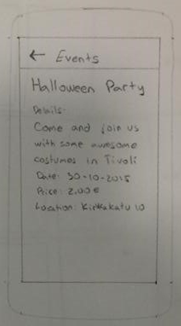 ← Events
Halloween Party
Details:
Come and join us
with some awesome
costumes in Tivoli
Date: 30-10-2015
Price: 2,00€
Location: Kirkkokatu 10